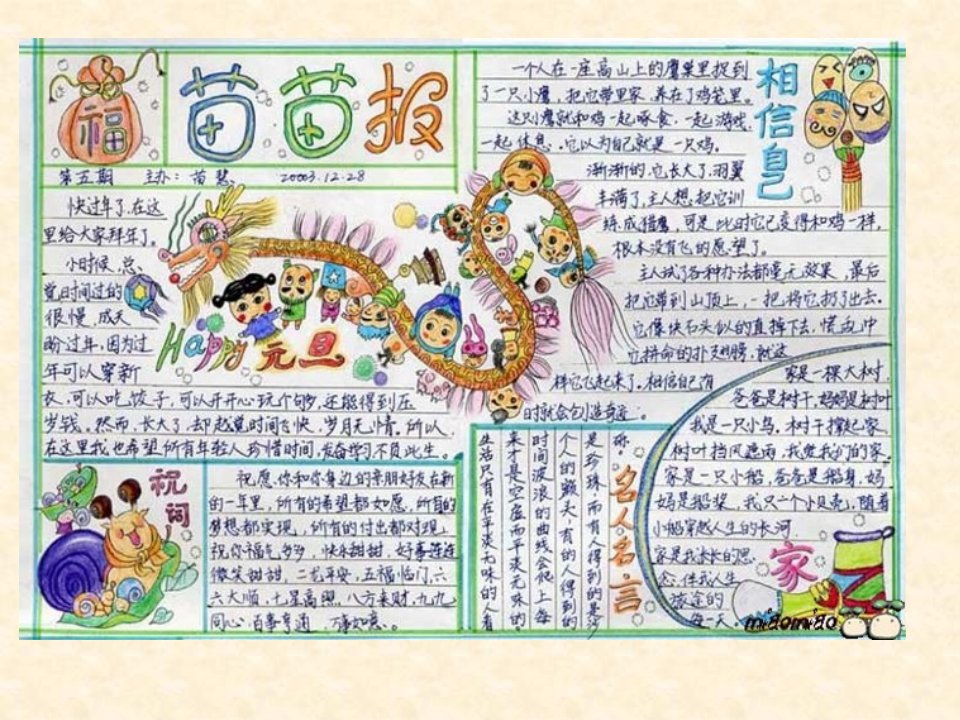 福
苗苗报
第五期 主办：苗慧 20003.12.28
快过年了，在这
里给大家拜年了。
小时候，总
觉时间过的
很慢，成天
盼过年，因为过
年可以穿新
衣，可以吃饺子，可以开开心玩个够，还能得到压
岁钱。然而，长大了，却越觉时间飞快，岁月无情。所以，
在这里我也希望所有年轻人珍惜时间，发奋学习不负此生。
Happy 元旦
相信自己
一个人在一座高山上的鹰巢里捉到
了一只小鹰，把它带里家，养在了鸡笼里。
这只小鹰就和鸡一起啄食，一起游戏，
一起休息，它以为自己就是一只鸡。
渐渐的，它长大了，羽翼
丰满了，主人想把它训
练成猎鹰，可是此时它已变得和鸡一样，
根本没有飞的愿望了。
主人试了各种办法都毫无效果，最后
把它带到山顶上，一把将它扔了出去。
它像快石头似的直掉下去，慌乱中
它拼命的扑翅膀，就这
样它飞起来了。相信自
时就会创造奇迹。
祝词
祝愿你和你身边的亲朋好友在新
的一年里，所有的希望都如愿，所有的
梦想都实现，所有的付出都对现，
祝你福气多多，快乐甜甜，好事连连
微笑甜甜，二龙平安，五福临门，六
六大顺，七星高照，八方来财，九九
同心，百事亨通，万事如意。
名人名言
你。
是珍珠，而有人得到的是
个人的额头，有的人得到的
时间波浪的曲线会他上每
来才是空虚而平淡无味的
生活只有在平淡无味的人看
家
家是一棵大树，
爸爸是树干，妈妈是树叶
我是一只小鸟。树干撑起家，
树叶挡风遮雨，我党我们的家。
家是一只小船，爸爸是船身，妈
妈是船桨，我只一个小贝壳，随着
小船穿越人生的长河
家是我长长的思
念，伴我人生
旅途的
每一天。
miaomiao